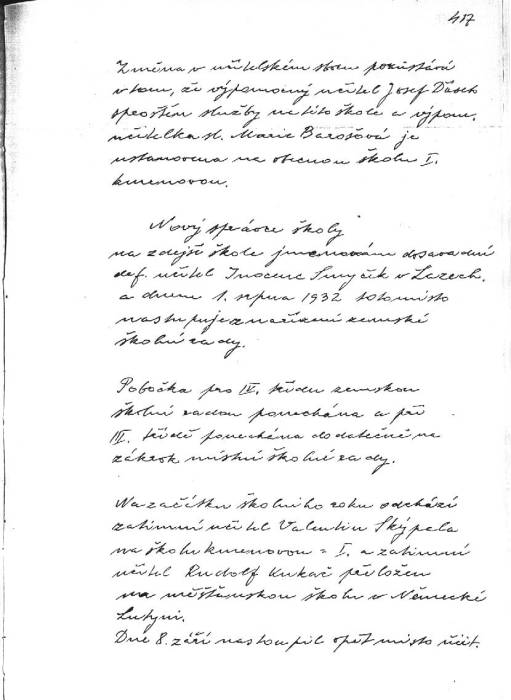 417
Změna v učitelském sboru pozůstává
v tom, že výpomocný učitel Josef Ďásek
sproštěn služby na této škole a výpom.
učitelka sl. Marie Barošová je
ustanovena na obecnou školu I.
kmenovou.
Nový správce školy
na zdejší škole jmenován dosavadní
def. učitel Inocenc Smyčík v Lazech.
a dnem 1. srpna 1932 toto místo
nastupuje z nařízení zemské
školní rady.
Pobočka pro IV. třídu zemskou
školní radou ponechána a při
III. třídě ponechána dodatečně na
zákrok místní školní rady.
Na začátku školního roku odchází
zatímní učitel Valentin Skýpala
na školu kmenovou - I. a zatímní
učitel Rudolf Kukač přeložen
na měšťanskou školu v Německé
Lutyni.
Dne 8. září nastoupil opět místo učit.